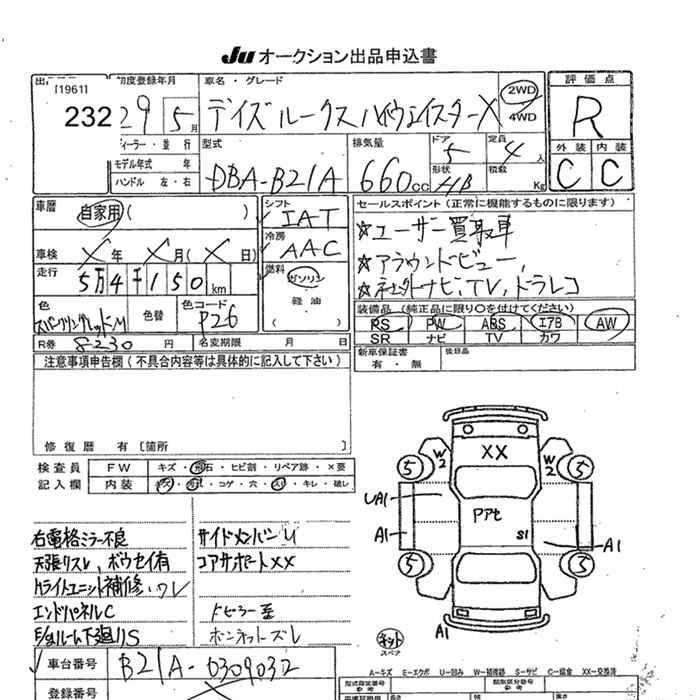 Ju オークション出品申込書
[1961]
232
初度登録年月
29 5月
車名・グレード
デイズルークスハイウェイスターX
2WD
4WD
評価点
R
外装 内装
C C
ディーラー・並行
モデル年式 年
ハンドル 左・右
型式
DBA-B21A
排気量
660cc
ドア
5
形状
HB
定員
4人
積載
Kg
車歴
自家用 ( )
車検 X年 X月(X日)
走行
5万4千150km
色
色替
色コード
P26
R券 8230円
名変期限 月 日
シフト
IAT
冷房
AAC
燃料
ガソリン
軽油
( )
セールスポイント (正常に機能するものに限ります)
☆ユーザー買取車
☆アラウンドビュー,
☆社外ナビ,TV,ドラレコ
装備品 (純正品に限り〇を付けてください)
PS PW ABS エアB AW
SR ナビ TV カワ
新車保証書
有・無
後日品
注意事項申告欄 (不具合内容等は具体的に記入して下さい)
修復歴 有 [箇所 ]
検査員
記入欄
FW キズ・飛石・ヒビ割・リペア跡・×要
内装 コゲ・穴・キレ・破レ
右電格ミラー不良
天張リスレ、ボウセイ有
エンドパネルC
サイドメンバーU
コアサポートXX
ボンネットズレ
車台番号 B21A-0309032
登録番号
XX
W2
W2
5
5
UA1
A1
Pアセ
S1
A1
5
5
A1
ネット
スペア
A-キズ E-エクボ U-凹み W-補修跡 S-サビ C-腐食 XX-交換済
型式指定番号
類別区分番号